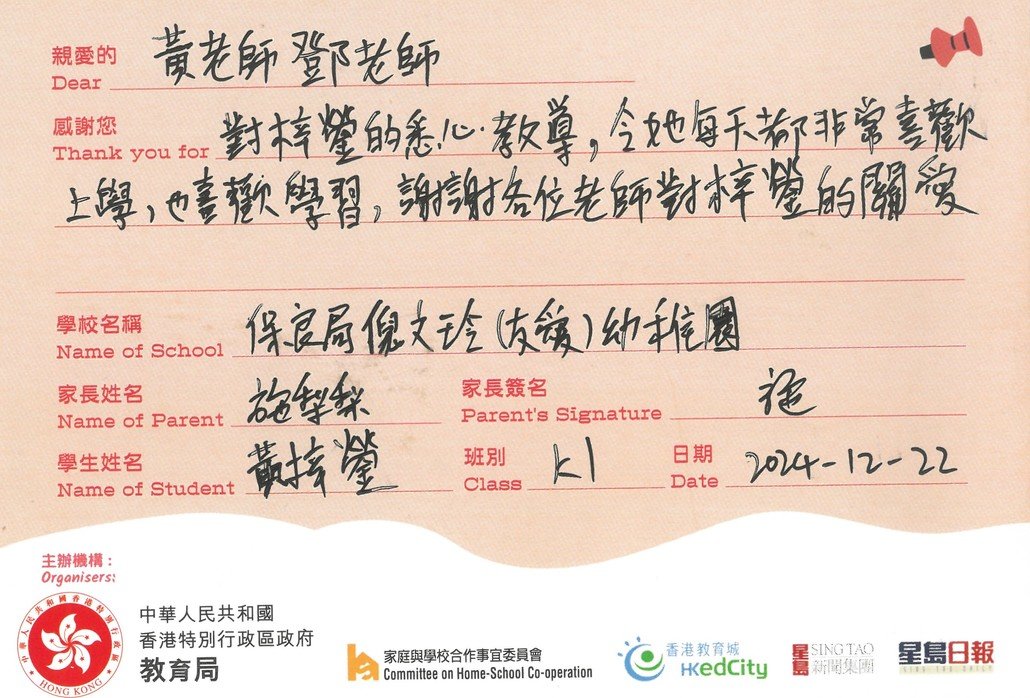 親愛的
Dear 黃老師 鄧老師
感謝您
Thank you for 對梓瑩的悉心教導，令她每天都非常喜歡
上學，也喜歡學習，謝謝各位老師對梓瑩的關愛
學校名稱
Name of School 保良局倪文玲(友愛)幼稚園
家長姓名 家長簽名
Name of Parent 施梨梨 Parent's Signature 施
學生姓名 班別 日期
Name of Student 黃梓瑩 Class K1 Date 2024-12-22
主辦機構：
Organisers:
中華人民共和國香港特別行政區
HONG KONG
中華人民共和國
香港特別行政區政府
教育局
家庭與學校合作事宜委員會
Committee on Home-School Co-operation
香港教育城
HKedCity
星島 SING TAO
新聞集團
星島日報
SING TAO DAILY